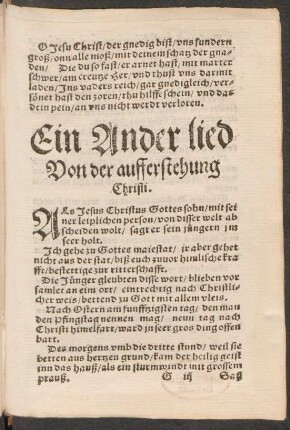 O Jesu Christ/ der gnedig bist/ vns sundern
groß/ onn alle moß/ mit deinem schatz der gna-
den/ Die du so fast/ er arnet hast/ mit marter
schwer/ am creutze her/ vnd thust vns darmit
laden/ Ins vaders reich/ gar gnedigleich/ ver-
sönet hast den zoren/ thu hilffe schein/ vnd das
dein pein/ an vns nicht werd verloren.
Ein Ander lied
Von der aufferstehung
Christi.
Als Jesus Christus Gottes sohn/ mit sei
ner leiplichen person/ von disser welt ab
scheiden wolt/ sagt er sein jüngern jm
seer holt.
Ich gehe zu Gottes maiestat/ ir aber gehet
nicht aus der stat/ biß euch zuuor himlische kra
fft/ bestettige zur ritterschafft.
Die Jünger gleubten disse wort/ blieben vor
samlet an eim ort/ eintrechtig nach Christli-
cher weis/ bettend zu Gott mit allem vleis.
Nach Ostern am funfftzigsten tag/ den man
den Pfingstag nennen mag/ neun tag nach
Christi himelfart/ ward jn seer gros ding offen
bart.
Des morgens vmb die dritte stund/ weil sie
betten aus hertzen grund/ kam der heilig geist
inn das hauß/ als ein sturmwindt mit grossem
prauß. G iij Sag